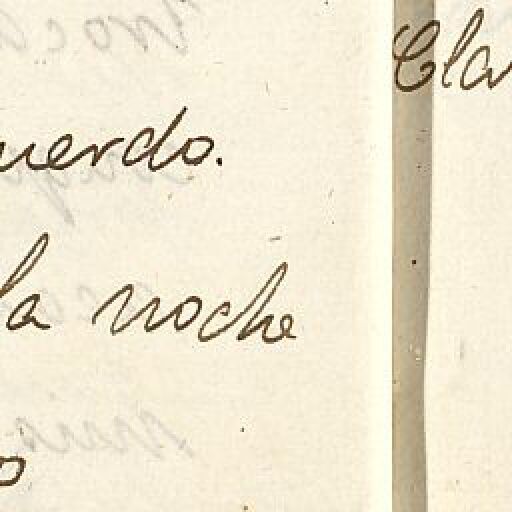 uerdo.
la noche
o
Cla